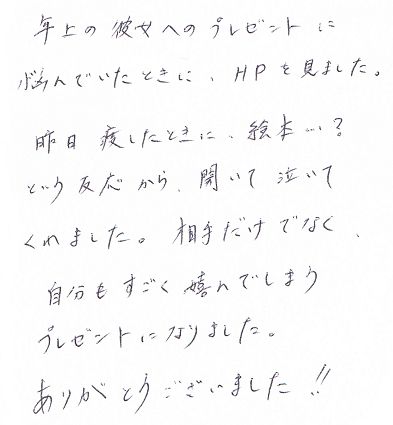 年上の彼女へのプレゼントに
悩んでいたときに、HPを見ました。
昨日 渡したときに、絵本…？
という反応から、開いて泣いて
くれました。相手だけでなく、
自分もすごく嬉んでしまう
プレゼントになりました。
ありがとうございました!!